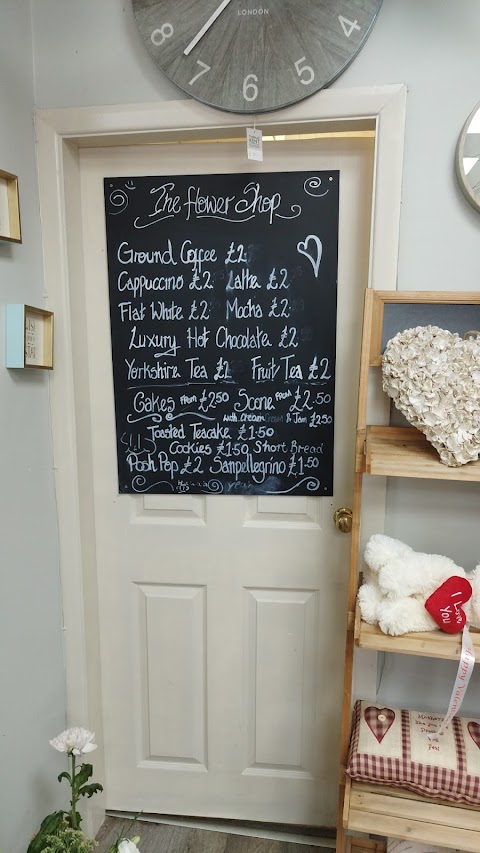 LONDON
8 7 6 5 4
The flower Shop
Ground Coffee £2
Cappuccino £2 Latte £2
Flat White £2 Mocha £2
Luxury Hot Chocolate £2
Yorkshire Tea £2 Fruit Tea £2
Cakes From £2.50 Scone From £2.50
with cream & Jam £2.50
Toasted Teacake £1.50
Cookies £1.50 Short Bread
Posh Pop £2 Sanpellegrino £1.50
yeah
I Love You
Happy Valen